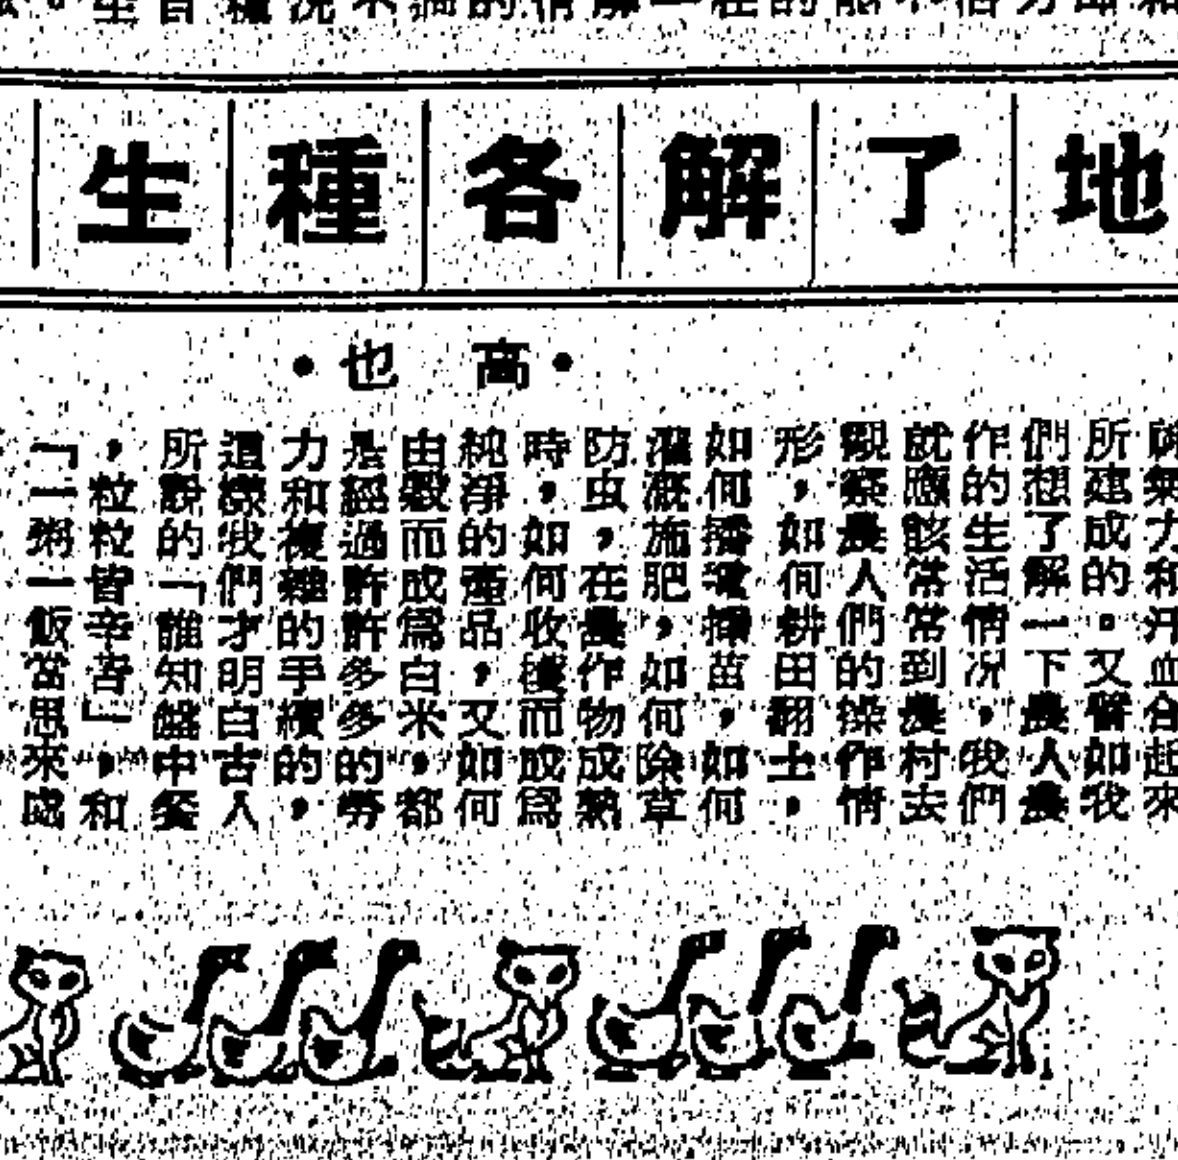 地了解各種生
高也
氣力和汗血合起來
所建成的。又譬如我
們想了解一下農人農
作的生活情況，我們
就應該常常到農村去
觀察農人們的操作情
形，如何耕田翻土，
如何播種插苗，如何
灌溉施肥，如何除草
防虫，在農作物成熟
時，如何收穫而成為
純淨的產品，又如何
由穀而成為白米，都
是經過許許多多的勞
力和複雜的手續的，
這樣我們才明白古人
所說的「誰知盤中餐
，粒粒皆辛苦」，和
「一粥一飯當思來處